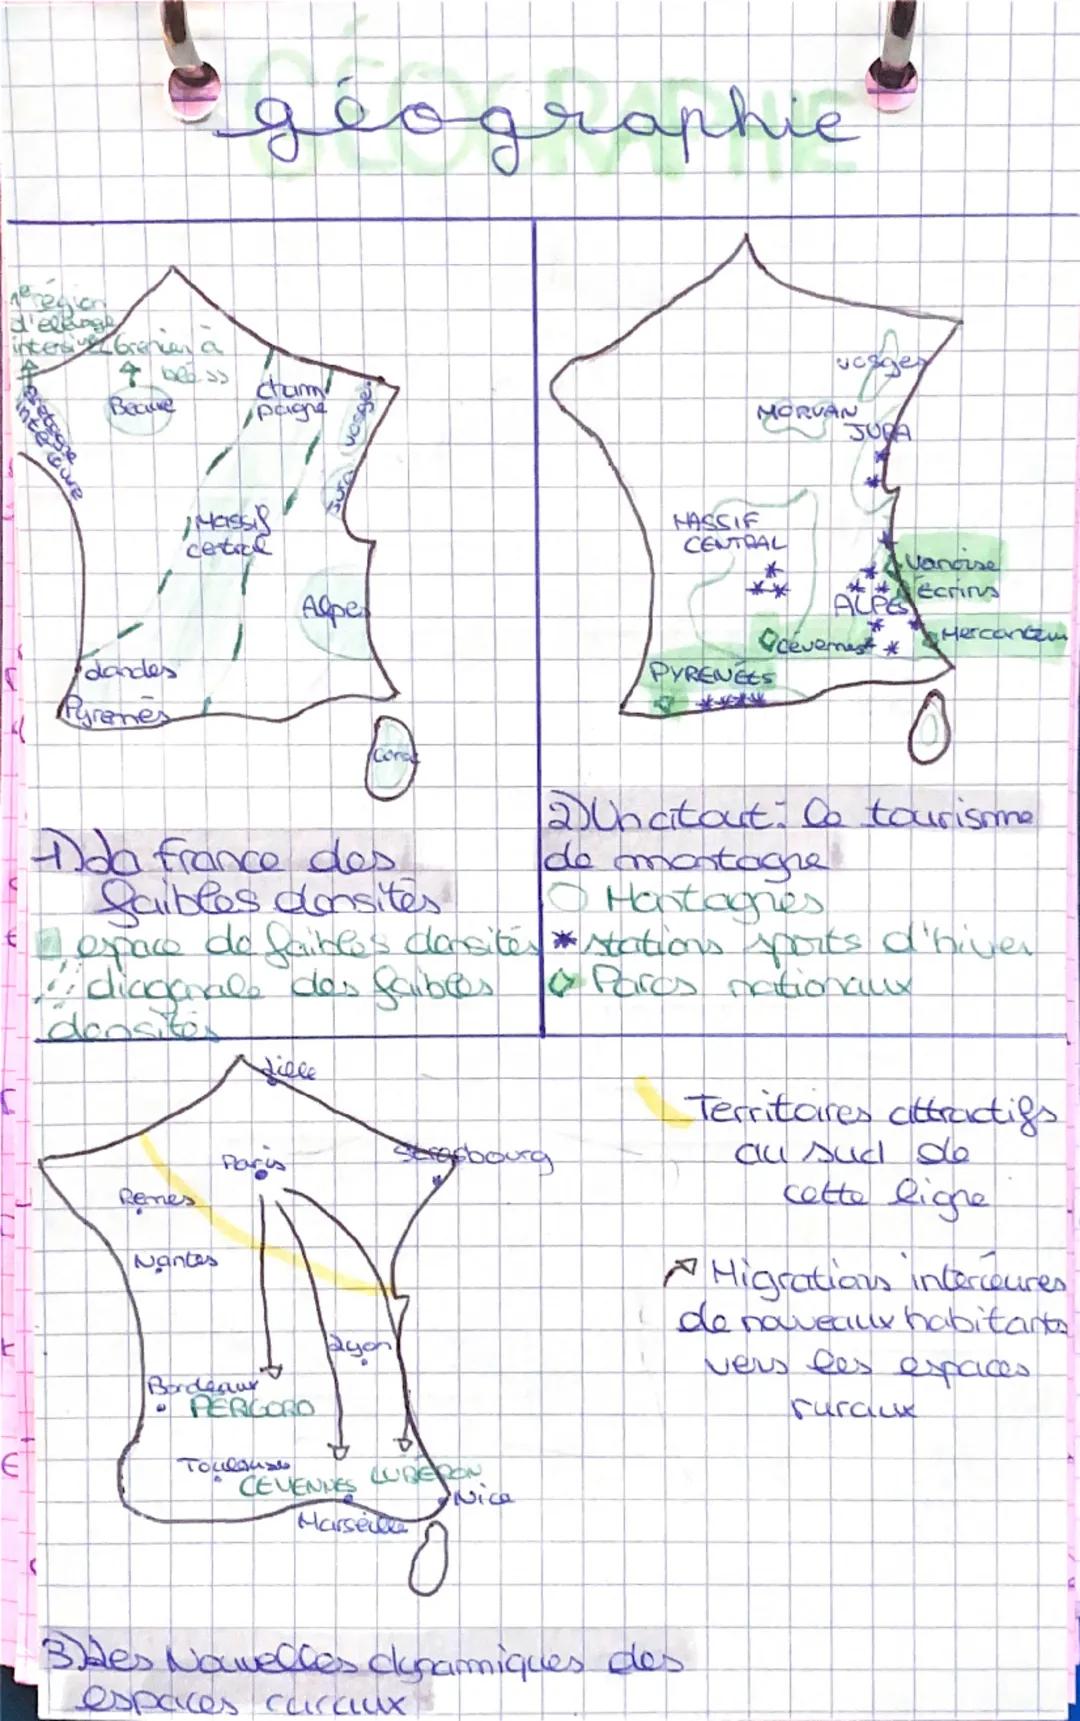 GÉOGRAPHIE
géographie
1e région
d'élevage
intensive
Bretagne
intérieure
Grenier à
blé >>
Beauce
Cham
pagne
Vosges
Jura
Massif
central
Alpes
Landes
Pyrenés
Corse
1) La france des
faibles densités
espace de faibles densités
diagonale des faibles
densités
vosges
MORVAN
JURA
MASSIF
CENTRAL
Vanoise
écrins
ALPES
Mercantour
cévennes
PYRENÉES
2) Un atout: le tourisme
de montagne
Montagnes
stations sports d'hiver
Parcs nationaux
Lille
Paris
Strasbourg
Rennes
Nantes
Lyon
Bordeaux
PERGORD
Toulouse
CEVENNES
LUBERON
Nice
Marseille
Territoires attractifs
au sud de
cette ligne
Migrations intérieures
de nouveaux habitants
vers les espaces
ruraux
3) Les Nouvelles dynamiques des
espaces ruraux